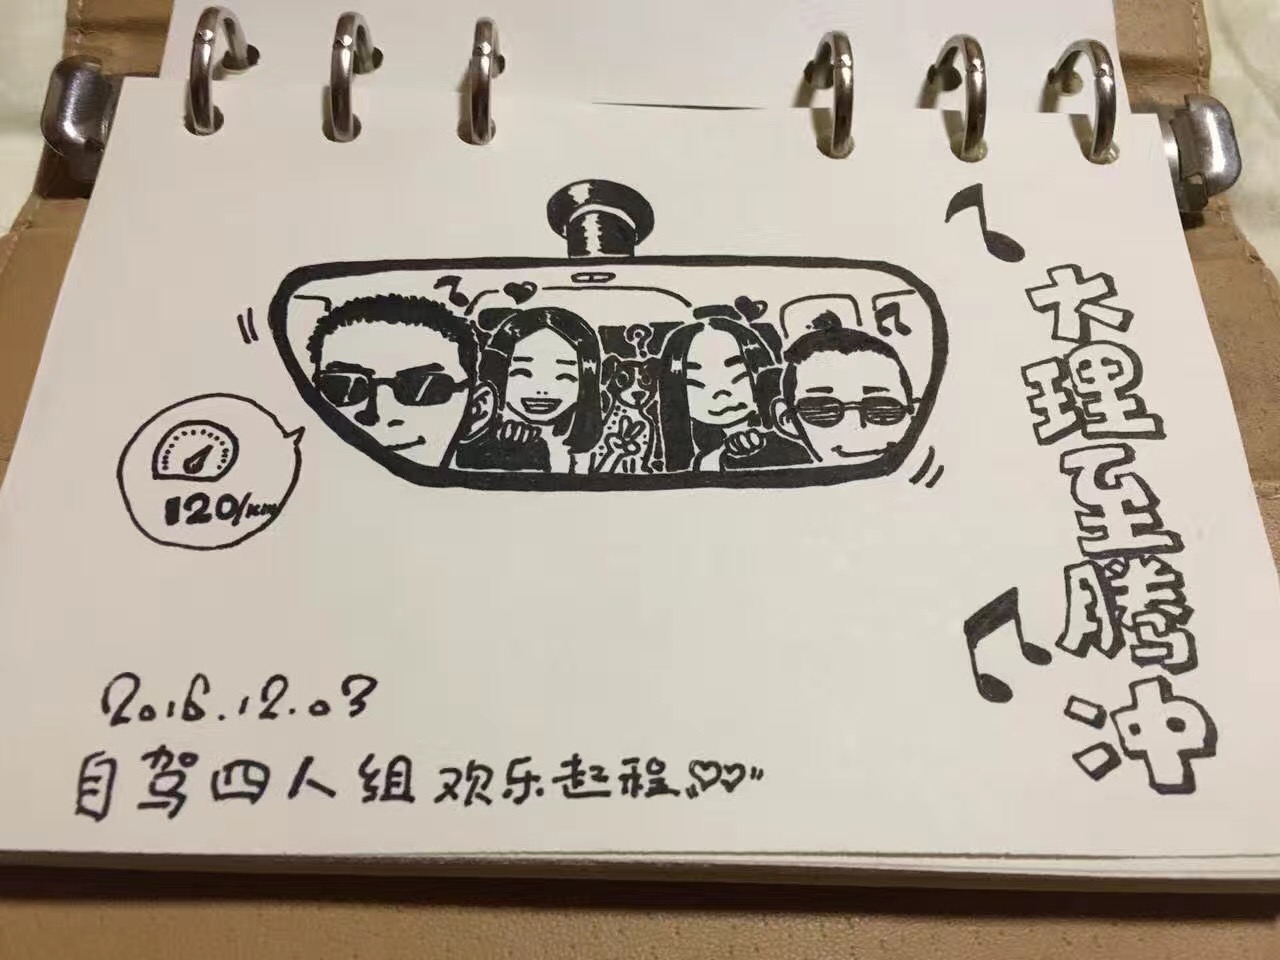 大理至腾冲
?
120/km
2016.12.03
自驾四人组欢乐起程